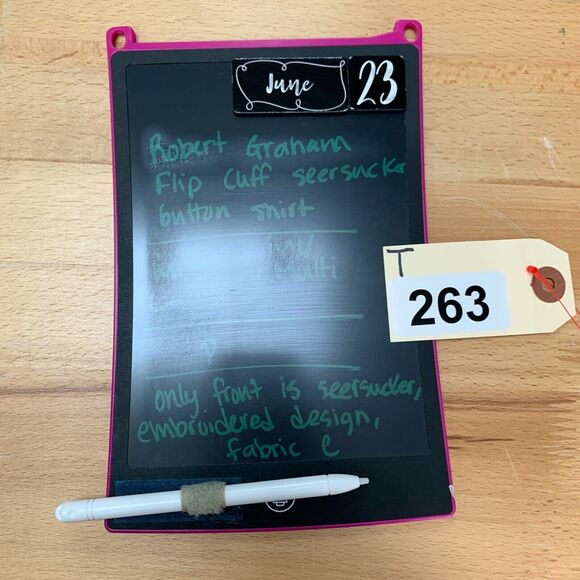 June 23
Robert Graham
Flip Cuff seersucker
button shirt
T
263
only front is seersucker,
embroidered design,
fabric e